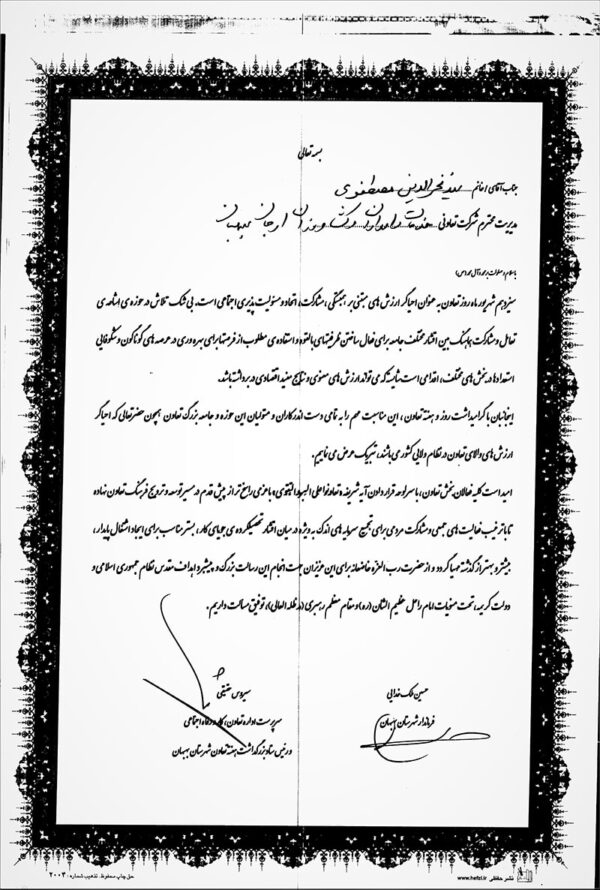 بسمه تعالی
جناب آقای / خانم سید فخرالدین مصطفوی
مدیریت محترم شرکت تعاونی خدمات دامداران و کشاورزان ارجان بهبهان
با سلام و صلوات بر محمد و آل محمد (ص)
سیزدهم شهریور ماه روز تعاون به عنوان احیاگر ارزش های مبتنی بر همبستگی، مشارکت، اتحاد و مسئولیت پذیری اجتماعی است. بی شک تلاش در حوزه ی اشاعه ی
تعامل و مشارکت هماهنگ بین اقشار مختلف جامعه برای فعال ساختن ظرفیتهای بالقوه و استفاده ی مطلوب از فرصتها برای بهره وری در عرصه های گوناگون و شکوفایی
استعدادها در بخش های مختلف، اقدامی است شایسته که می تواند ارزش های معنوی و نتایج مفید اقتصادی در برداشته باشد.
اینجانبان با گرامیداشت روز و هفته تعاون، این مناسبت مهم را به تمامی دست اندرکاران و متولیان این حوزه و جامعه بزرگ تعاون همچون حضرتعالی که احیاگر
ارزش های والای تعاون در نظام ولایی کشور می باشند، تبریک عرض می نماییم.
امید است کلیه فعالان بخش تعاون، با سرلوحه قرار دادن آیه شریفه و تعاونوا علی البر و التقوی، با عزمی راسخ تر از پیش قدم در مسیر توسعه و ترویج فرهنگ تعاون نهاده
تا با ترغیب فعالیت های جمعی و مشارکت مردمی برای تجمیع سرمایه های اندک به ویژه در میان اقشار تحصیلکرده ی جویای کار، بستر مناسب برای ایجاد اشتغال پایدار،
بیشتر و بهتر از گذشته مهیا گردد و از حضرت رب العزه خاضعانه برای این عزیزان جهت انجام این رسالت بزرگ و پیشبرد اهداف مقدس نظام جمهوری اسلامی و
دولت کریمه، تحت منویات امام راحل عظیم الشان (ره) و مقام معظم رهبری (مدظله العالی)، توفیق مسالت داریم.
حسین فلک خدایی
فرماندار شهرستان بهبهان
سیروس حقیقی
سرپرست اداره تعاون، کار و رفاه اجتماعی
و رئیس ستاد بزرگداشت هفته تعاون شهرستان بهبهان
نشر حفظی www.hefzi.ir
حق چاپ محفوظ. تذهیب شماره: ۲۰۰۳